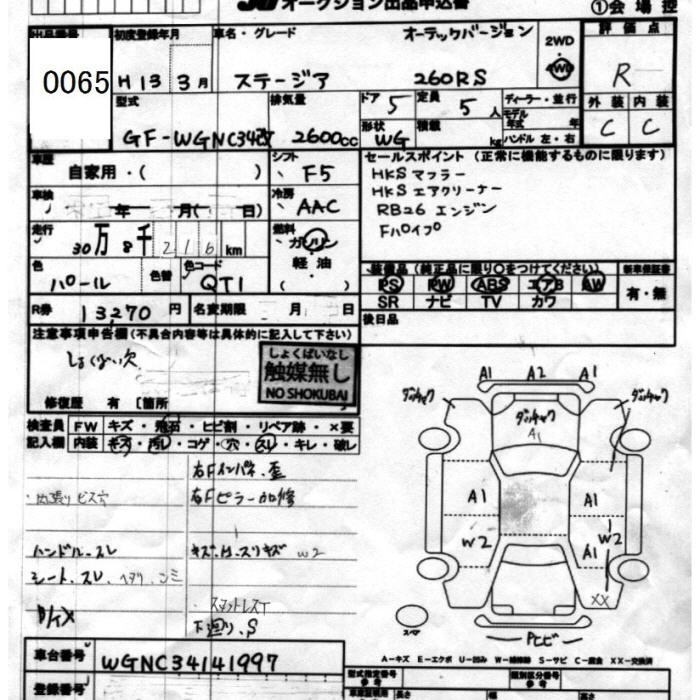 オークション出品申込書
①会場控
出品番号 初度登録年月 車名・グレード オーテックバージョン 2WD 4WD 評価点
0065 H13 3月 ステージア 260RS R
型式 排気量 ドア 5 定員 5人 ディーラー・並行 外装 内装
GF-WGNC34改 2600cc 形状 WG 積載 kg モデル年式 年 ハンドル 左・右 C C
車歴 自家用・( ) シフト F5 セールスポイント (正常に機能するものに限ります)
HKS マフラー
HKS エアクリーナー
車検 年 月( 日) 冷房 AAC RB26 エンジン
走行 30万8千216km 燃料 ガソリン 軽油 Fパイプ
色 パール 色替 色コード QT1 装備品(純正品に限り○をつけてください) 新車保証書
PS PW ABS エアB AW 有・無
SR ナビ TV カワ
R券 13,270円 名変期限 月 日 後日品
注意事項申告欄(不具合内容等は具体的に記入して下さい)
しょくばい欠
しょくばいなし
触媒無し
NO SHOKUBAI
修復歴 有 〔箇所
検査員 FW キズ・飛石・ヒビ割・リペア跡・×要
記入欄 内装 キズ・汚レ・コゲ・穴・スレ・キレ・破レ
右Fインパネ 歪
内張リ ビス穴 右Fピラー加修
ハンドルスレ キズ、凹、スリキズ W2
シート、スレ、ヘタリ、シミ
スタットレスT
下廻り、S
A1 A2 A1
ダッチャク ダッチャク
ダッチャク
A1
A1 A1
W2 W2
A1
XX
スペア
A-キズ E-エクボ U-凹み W-補修跡 S-サビ C-腐食 XX-交換済
車台番号 WGNC34141997
型式指定番号 類別区分番号
登録番号 参考 参考
長さ 幅 高さ